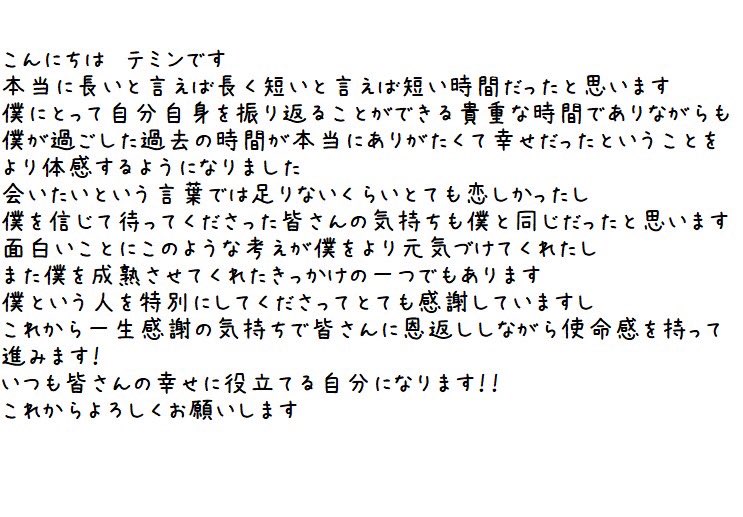 こんにちは　テミンです
本当に長いと言えば長く短いと言えば短い時間だったと思います
僕にとって自分自身を振り返ることができる貴重な時間でありながらも
僕が過ごした過去の時間が本当にありがたくて幸せだったということを
より体感するようになりました
会いたいという言葉では足りないくらいとても恋しかったし
僕を信じて待ってくださった皆さんの気持ちも僕と同じだったと思います
面白いことにこのような考えが僕をより元気づけてくれたし
また僕を成熟させてくれたきっかけの一つでもあります
僕という人を特別にしてくださってとても感謝していますし
これから一生感謝の気持ちで皆さんに恩返ししながら使命感を持って
進みます!
いつも皆さんの幸せに役立てる自分になります!!
これからよろしくお願いします